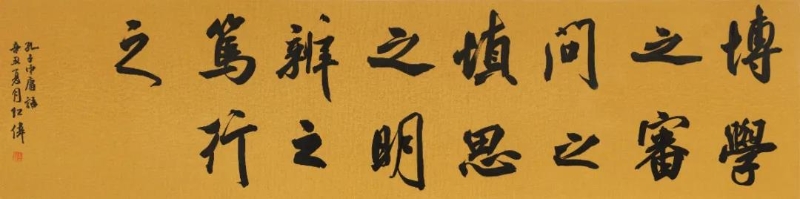 博學
之審
問之
慎思
之明
辨之
篤行
之
孔子中庸語
辛丑夏月红偉